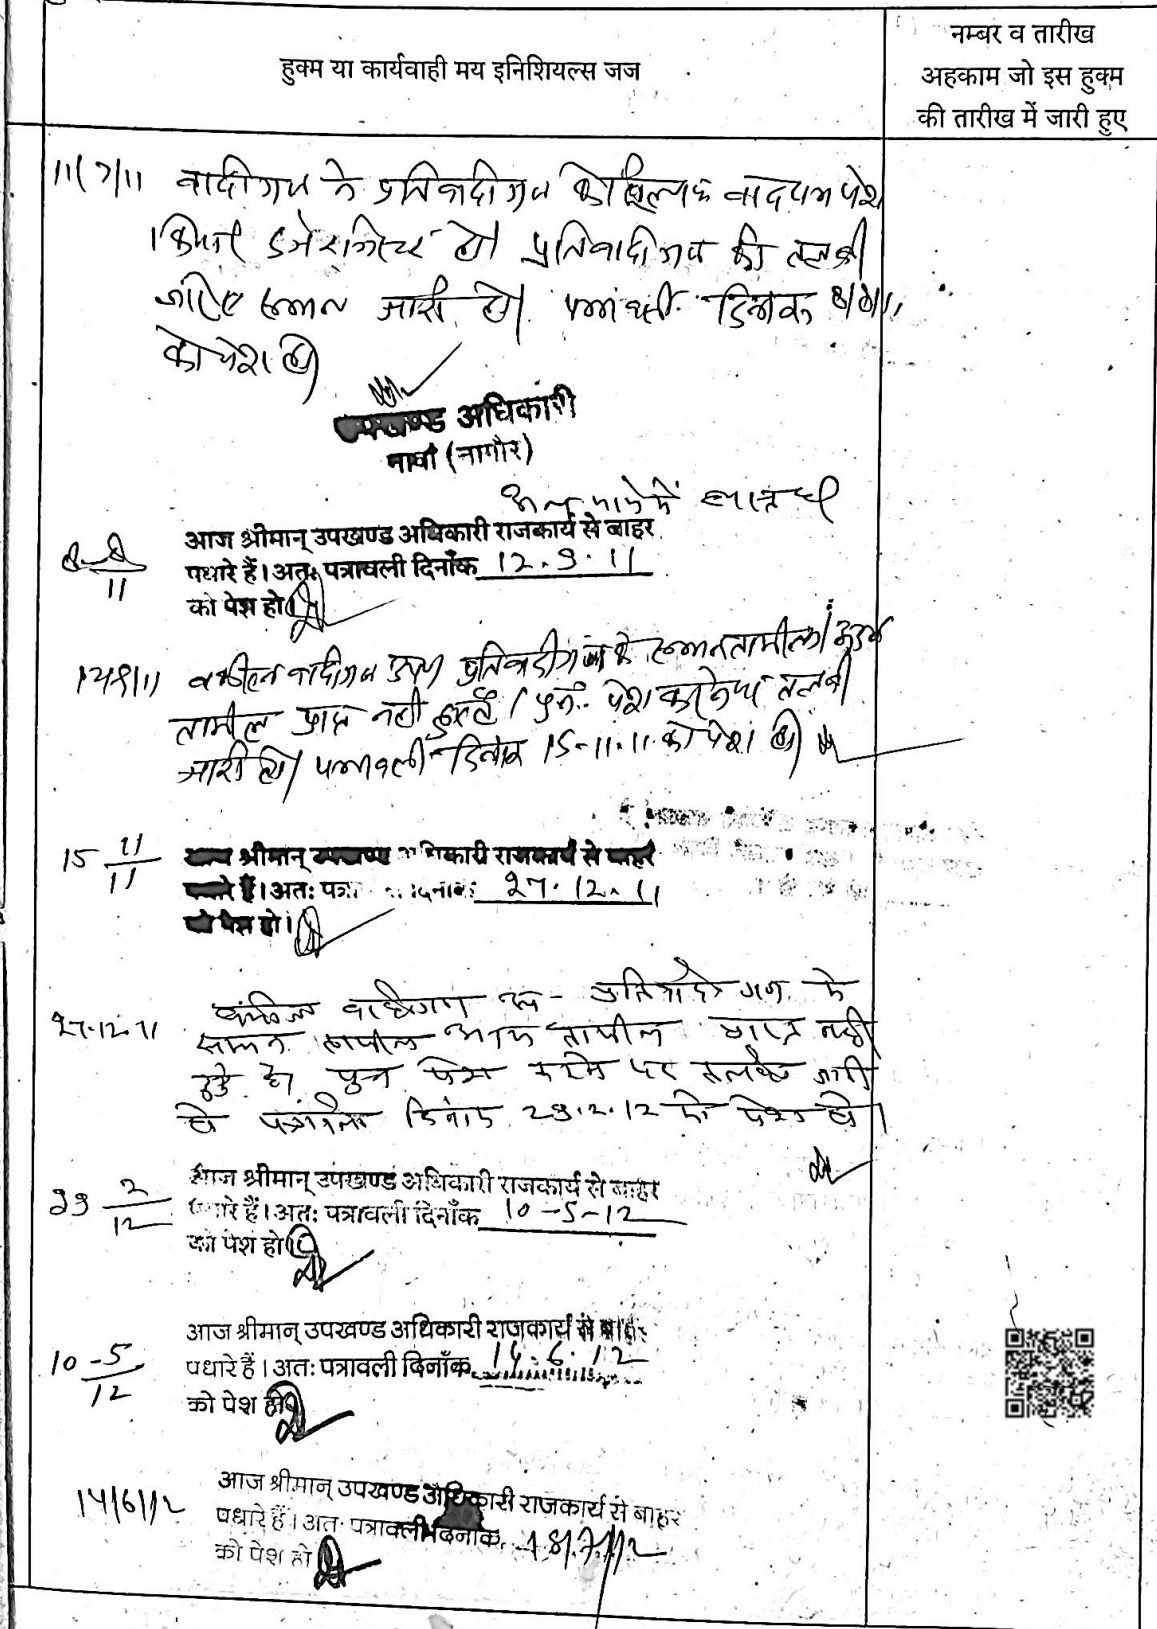 हुक्म या कार्यवाही मय इनिशियल्स जज
नम्बर व तारीख
अहकाम जो इस हुक्म
की तारीख में जारी हुए
11/7/11 वादीगण ने प्रतिवादीगण के खिलाफ वादपत्र पेश
किया दर्ज रजिस्टर हो। प्रतिवादीगण की तलबी
जरिए सम्मन जारी हो। पत्रावली दिनांक 8/8/11
को पेश हो
उपखण्ड अधिकारी
नावां (नागौर)
8-8/11
आज श्रीमान् उपखण्ड अधिकारी राजकार्य से बाहर
पधारे हैं। अतः पत्रावली दिनाँक 12.9.11
को पेश हो।
12/9/11 वकील वादीगण उप0 प्रतिवादीगण के सम्मन तामील
तामील प्राप्त नही हुए है। पुनः पेश करने पर तलबी
जारी हो। पत्रावली दिनांक 15-11-11 को पेश हो
15 11/11
आज श्रीमान् उपखण्ड अधिकारी राजकार्य से बाहर
पधारे हैं। अतः पत्रा दिनांक 27.12.11
को पेश हो।
27.12.11 वकील वादीगण उप प्रतिवादी गण के
सम्मन तामील तामील प्राप्त नही
हुई है। पुनः पेश करने पर तलबी जारी
हो पत्रावली दिनांक 29.2.12 को पेश हो।
29 2/12
आज श्रीमान् उपखण्ड अधिकारी राजकार्य से बाहर
पधारे हैं। अतः पत्रावली दिनाँक 10-5-12
को पेश हो।
10-5/12
आज श्रीमान् उपखण्ड अधिकारी राजकार्य से बाहर
पधारे हैं। अतः पत्रावली दिनाँक 14.6.12
को पेश हो
14/6/12
आज श्रीमान् उपखण्ड अधिकारी राजकार्य से बाहर
पधारे हैं। अतः पत्रावली दिनांक 18/7/12
को पेश हो